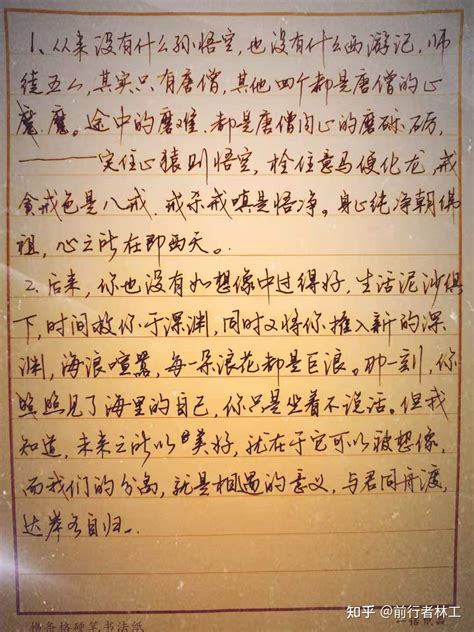 1、从来没有什么孙悟空,也没有什么西游记,师
徒五人,其实只有唐僧,其他四个都是唐僧的心
魔。途中的磨难,都是唐僧内心的磨砾砺,
——定住心猿则悟空,栓住意马便化龙,戒
贪戒色是八戒,戒杀戒嗔是悟净。身心纯净朝佛
祖,心之所在即西天。
2.后来,你也没有如想像中过得好,生活泥沙俱
下,时间救你于深渊,同时又将你推入新的深
渊,海浪喧嚣,每一朵浪花都是巨浪。那一刻,你
照照见了海里的自己,你只是坐着不说话。但我
知道,未来之所以美好,就在于它可以被想像,
而我们的分离,就是相遇的意义,与君同舟渡,
达岸各自归。
条格硬笔书法纸
知乎 @前行者林工